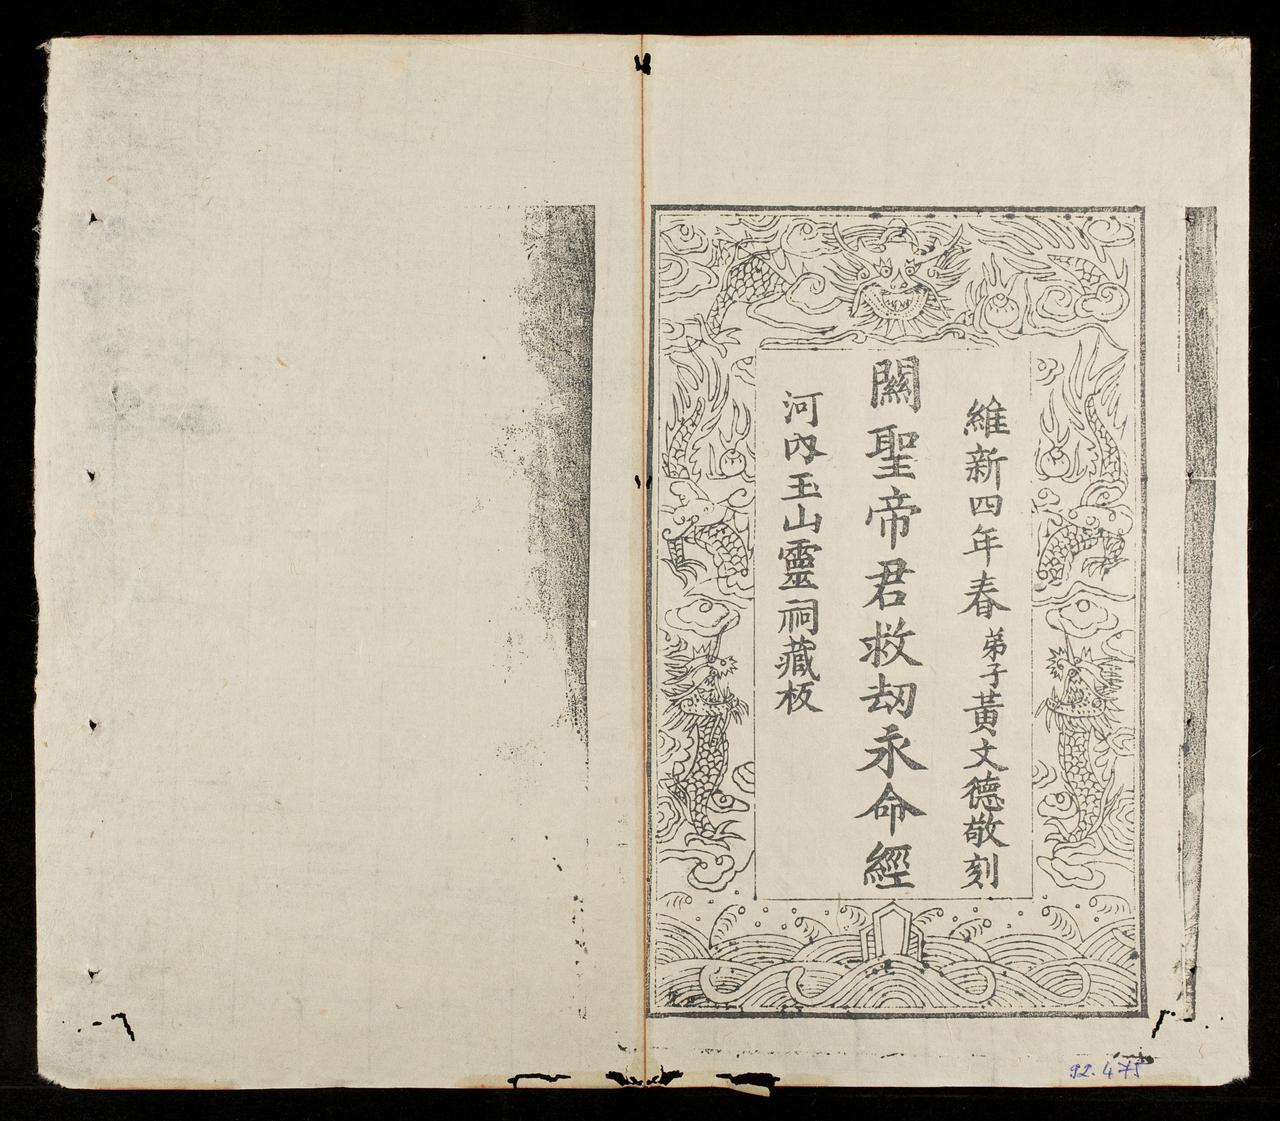 維新四年春 弟子黃文德敬刻
關聖帝君救刼永命經
河內玉山靈祠藏板
92.475